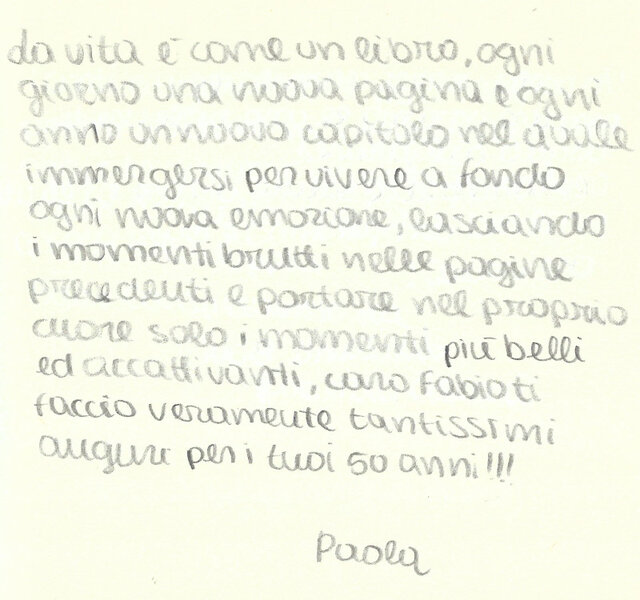 La vita è come un libro, ogni
giorno una nuova pagina e ogni
anno un nuovo capitolo nel quale
immergersi per vivere a fondo
ogni nuova emozione, lasciando
i momenti brutti nelle pagine
precedenti e portare nel proprio
cuore solo i momenti più belli
ed accattivanti, caro Fabio ti
faccio veramente tantissimi
auguri per i tuoi 50 anni!!!
Paola